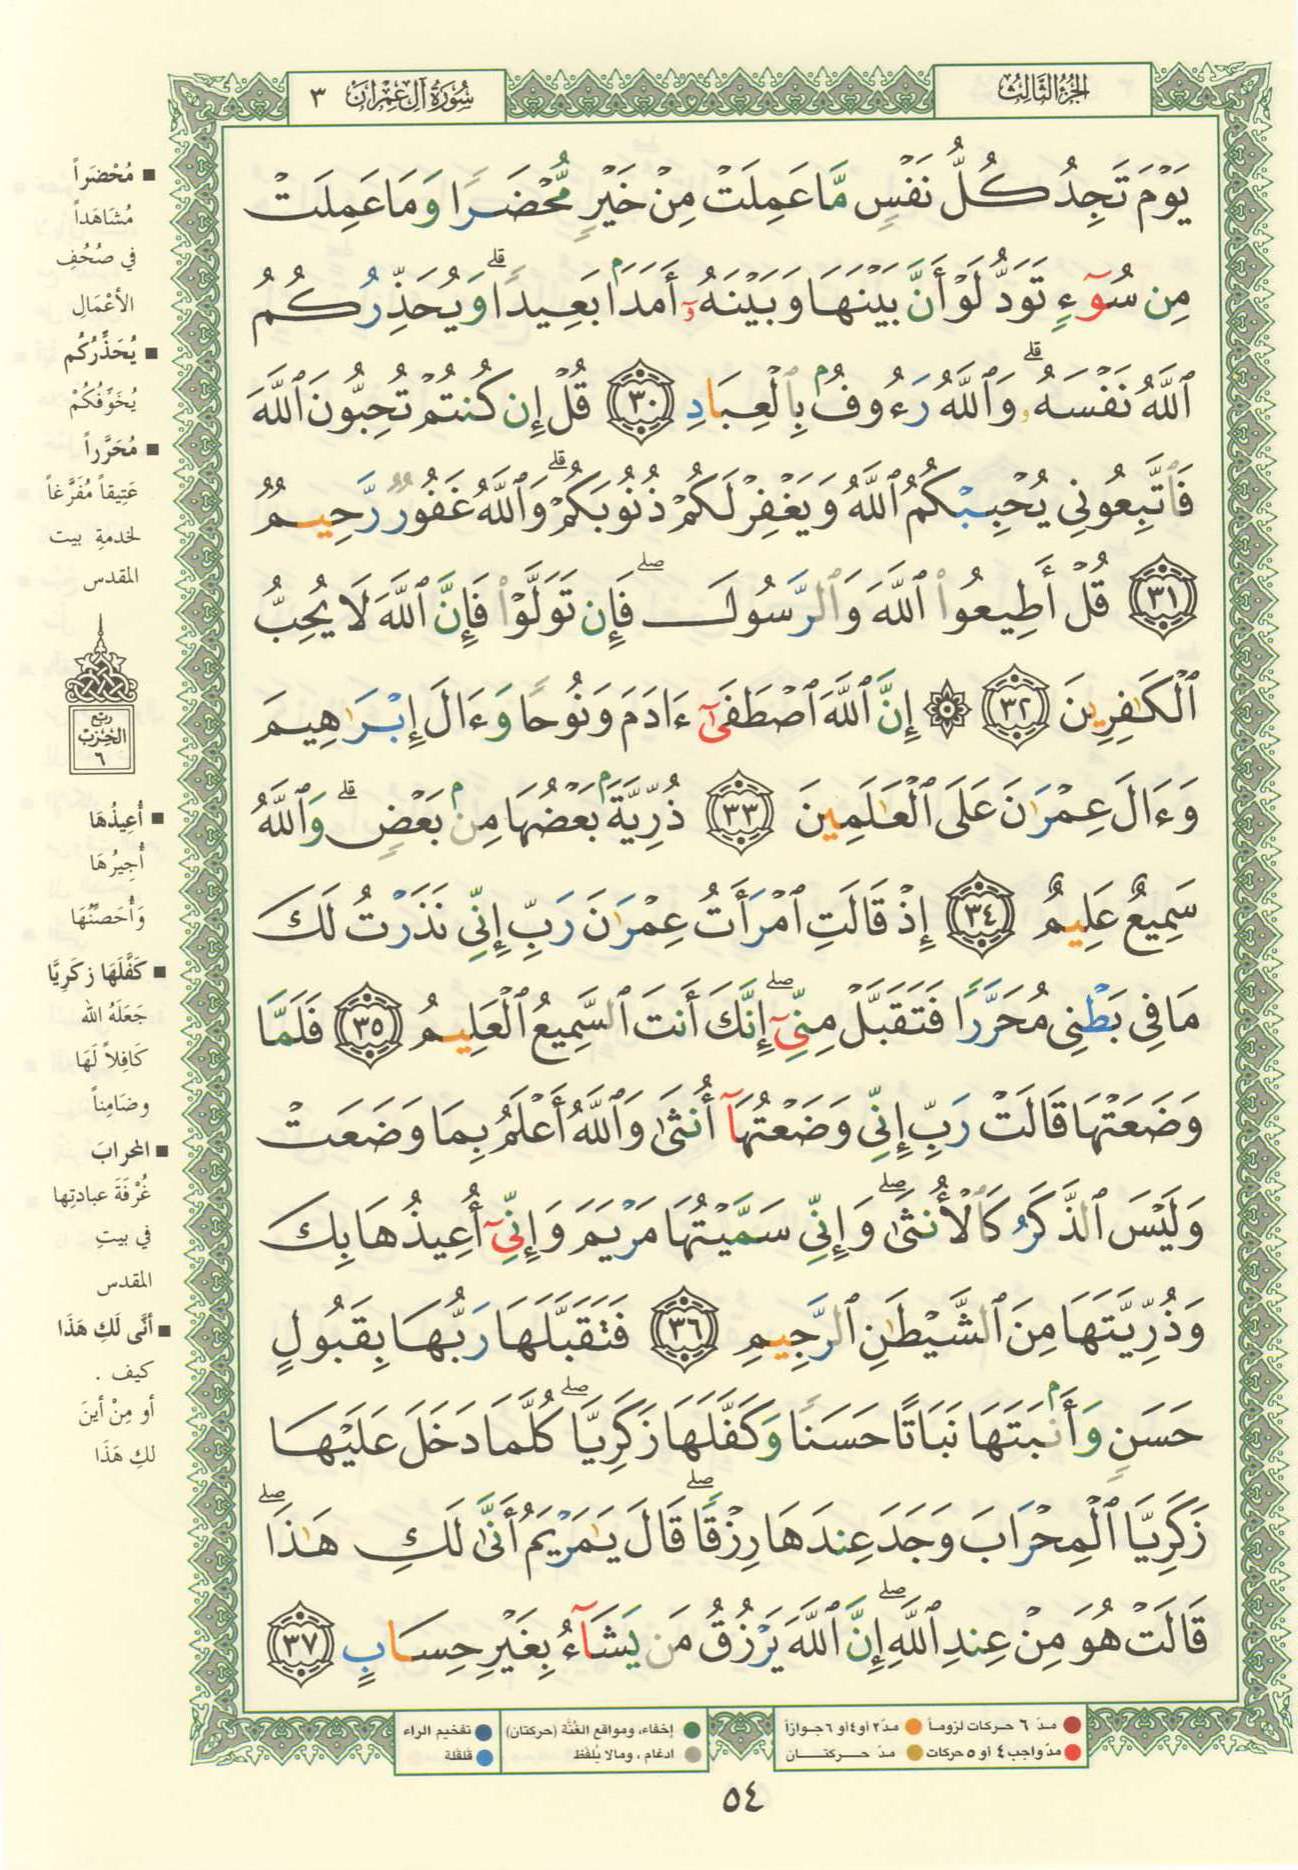 الجزء الثالث
سورة آل عمران ٣
يَوْمَ تَجِدُ كُلُّ نَفْسٍ مَّا عَمِلَتْ مِنْ خَيْرٍ مُّحْضَرًا وَمَا عَمِلَتْ
مِن سُوٓءٍ تَوَدُّ لَوْ أَنَّ بَيْنَهَا وَبَيْنَهُۥٓ أَمَدَۢا بَعِيدًا ۗ وَيُحَذِّرُكُمُ
ٱللَّهُ نَفْسَهُۥ ۗ وَٱللَّهُ رَءُوفُۢ بِٱلْعِبَادِ ٣٠ قُلْ إِن كُنتُمْ تُحِبُّونَ ٱللَّهَ
فَٱتَّبِعُونِى يُحْبِبْكُمُ ٱللَّهُ وَيَغْفِرْ لَكُمْ ذُنُوبَكُمْ ۗ وَٱللَّهُ غَفُورٌ رَّحِيمٌ
٣١ قُلْ أَطِيعُوا۟ ٱللَّهَ وَٱلرَّسُولَ ۖ فَإِن تَوَلَّوْا۟ فَإِنَّ ٱللَّهَ لَا يُحِبُّ
ٱلْكَٰفِرِينَ ٣٢ ۞ إِنَّ ٱللَّهَ ٱصْطَفَىٰٓ ءَادَمَ وَنُوحًا وَءَالَ إِبْرَٰهِيمَ
وَءَالَ عِمْرَٰنَ عَلَى ٱلْعَٰلَمِينَ ٣٣ ذُرِّيَّةَۢ بَعْضُهَا مِنۢ بَعْضٍ ۗ وَٱللَّهُ
سَمِيعٌ عَلِيمٌ ٣٤ إِذْ قَالَتِ ٱمْرَأَتُ عِمْرَٰنَ رَبِّ إِنِّى نَذَرْتُ لَكَ
مَا فِى بَطْنِى مُحَرَّرًا فَتَقَبَّلْ مِنِّىٓ ۖ إِنَّكَ أَنتَ ٱلسَّمِيعُ ٱلْعَلِيمُ ٣٥ فَلَمَّا
وَضَعَتْهَا قَالَتْ رَبِّ إِنِّى وَضَعْتُهَآ أُنثَىٰ وَٱللَّهُ أَعْلَمُ بِمَا وَضَعَتْ
وَلَيْسَ ٱلذَّكَرُ كَٱلْأُنثَىٰ ۖ وَإِنِّى سَمَّيْتُهَا مَرْيَمَ وَإِنِّىٓ أُعِيذُهَا بِكَ
وَذُرِّيَّتَهَا مِنَ ٱلشَّيْطَٰنِ ٱلرَّجِيمِ ٣٦ فَتَقَبَّلَهَا رَبُّهَا بِقَبُولٍ
حَسَنٍ وَأَنۢبَتَهَا نَبَاتًا حَسَنًا وَكَفَّلَهَا زَكَرِيَّا ۖ كُلَّمَا دَخَلَ عَلَيْهَا
زَكَرِيَّا ٱلْمِحْرَابَ وَجَدَ عِندَهَا رِزْقًا ۖ قَالَ يَٰمَرْيَمُ أَنَّىٰ لَكِ هَٰذَا ۖ
قَالَتْ هُوَ مِنْ عِندِ ٱللَّهِ ۖ إِنَّ ٱللَّهَ يَرْزُقُ مَن يَشَآءُ بِغَيْرِ حِسَابٍ ٣٧
■ مُحْضَراً
مُشَاهَداً
في صُحُفِ
الأَعْمَالِ
■ يُحَذِّرُكُم
يُخَوِّفُكُمْ
■ مُحَرَّراً
عَتِيقاً مُفَرَّغاً
لخدمةِ بيت
المقدس
ربع
الحزب
٦
■ أُعِيذُهَا
أُجِيرُهَا
وَأُحَصِّنُهَا
■ كَفَّلَهَا زكَرِيَّا
جَعَلَهُ الله
كَافِلاً لَهَا
وضَامِناً
■ المحرابَ
غُرْفَةَ عبادتِها
في بيتِ
المقدس
■ أَنَّى لَكِ هَذَا
كيف .
أو مِنْ أينَ
لكِ هَذَا
● مدّ ٦ حركات لزوماً ● مدّ ٢ أو ٤ أو ٦ جوازاً
● مدّ واجب ٤ أو ٥ حركات ● مدّ حركتان
● إخفاء، ومواقع الغُنَّة (حركتان) ● تفخيم الراء
● ادغام ، ومالا يُلفظ ● قلقلة
٥٤